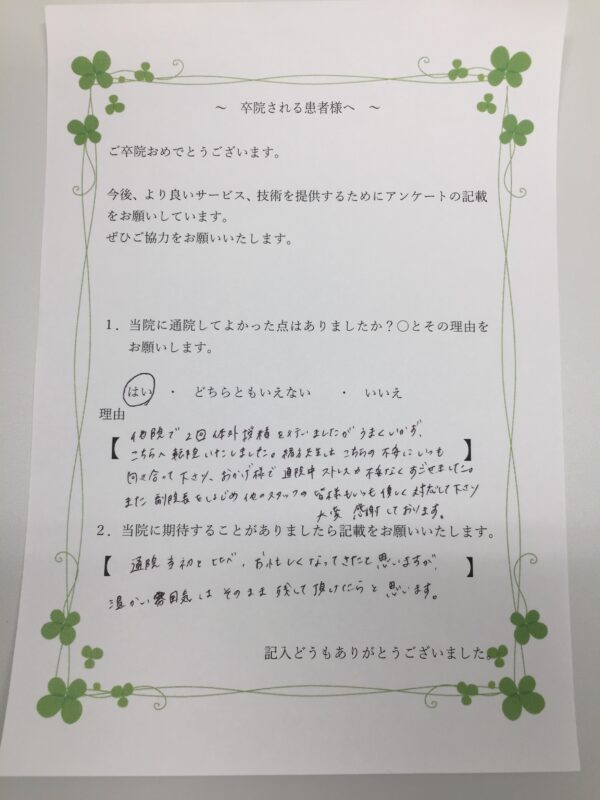 ～　卒院される患者様へ　～
ご卒院おめでとうございます。
今後、より良いサービス、技術を提供するためにアンケートの記載
をお願いしています。
ぜひご協力をお願いいたします。
１．当院に通院してよかった点はありましたか？〇とその理由を
お願いします。
はい　・　どちらともいえない　・　いいえ
理由
【他院で2回体外授精を行いましたがうまくいかず、
こちらへ転院いたしました。先生は こちらの不安にいつも】
向き合って下さり、おかげ様で通院中ストレスや不安なくすごせました。
また副院長をはじめ他のスタッフの皆様もいつも優しく対応して下さり
大変 感謝しております。
２．当院に期待することがありましたら記載をお願いいたします。
【通院当初と比べ、お忙しくなってきたと思いますが、】
温かい雰囲気はそのまま残して頂けたらと思います。
記入どうもありがとうございました。